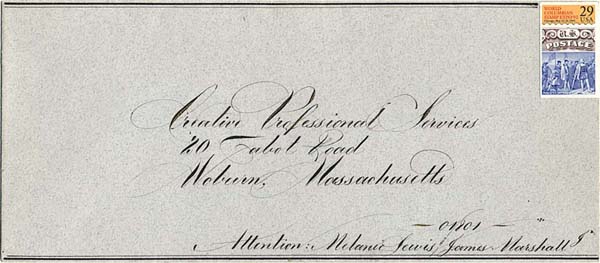 WORLD
COLUMBIAN
STAMP EXPO '92
29
USA
U.S.
POSTAGE
Creative Professional Services
20 Talbot Road
Woburn, Massachusetts
—01801—
Attention: Melanie Lewis / James Marshall Jr